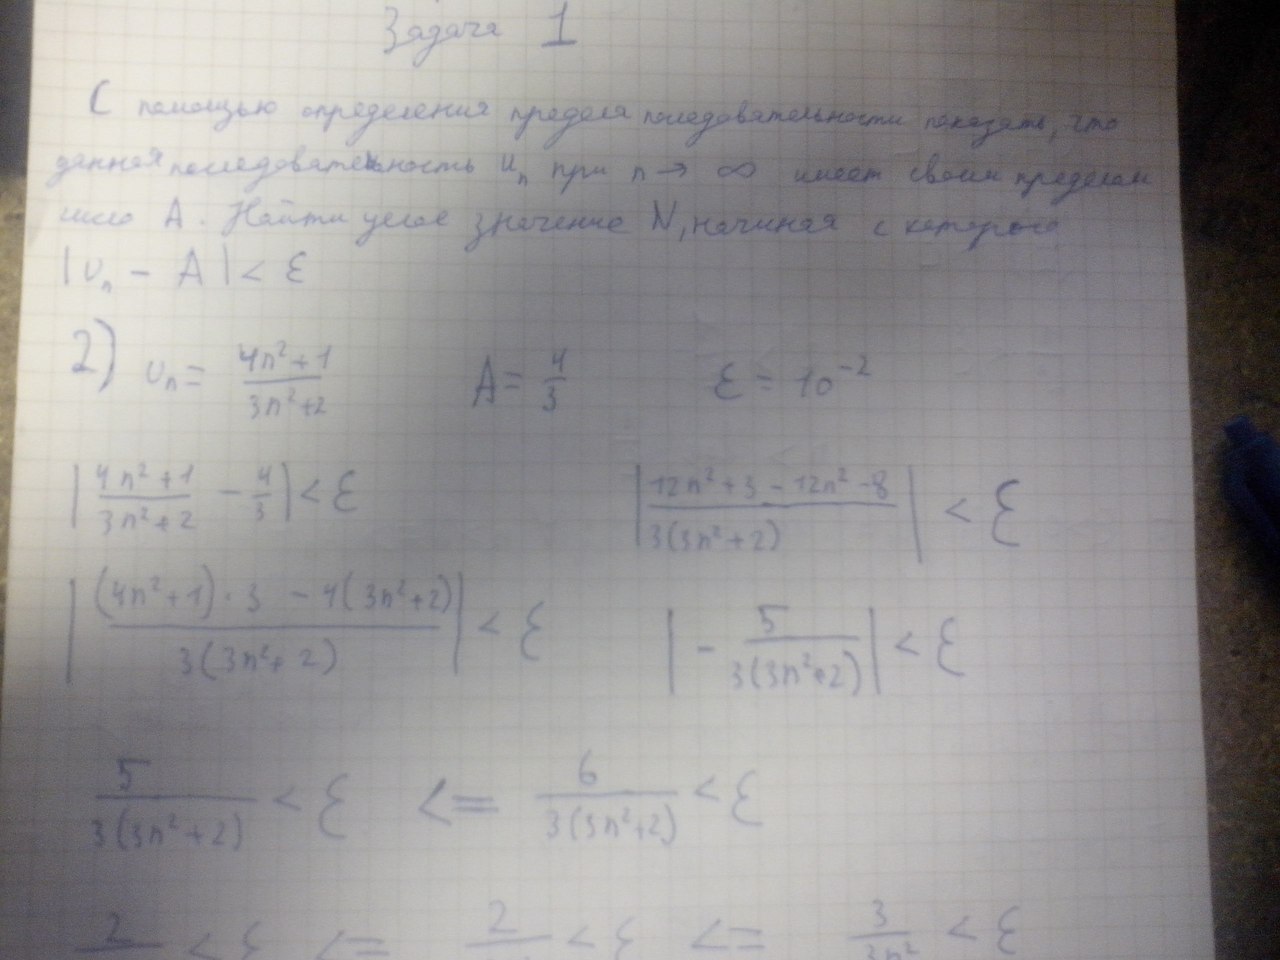 Задача 1
С помощью определения предела последовательности показать, что
данная последовательность uₙ при n → ∞ имеет своим пределом
число A. Найти целое значение N, начиная с которого
|uₙ - A| < ε
2) uₙ = (4n² + 1)/(3n² + 2) A = 4/3 ε = 10⁻²
|(4n² + 1)/(3n² + 2) - 4/3| < ε |(12n² + 3 - 12n² - 8)/(3(3n² + 2))| < ε
|((4n² + 1) · 3 - 4(3n² + 2))/(3(3n² + 2))| < ε |- 5/(3(3n² + 2))| < ε
5/(3(3n² + 2)) < ε <= 6/(3(3n² + 2)) < ε
2 < ε <= 2 < ε <= 3/3n² < ε